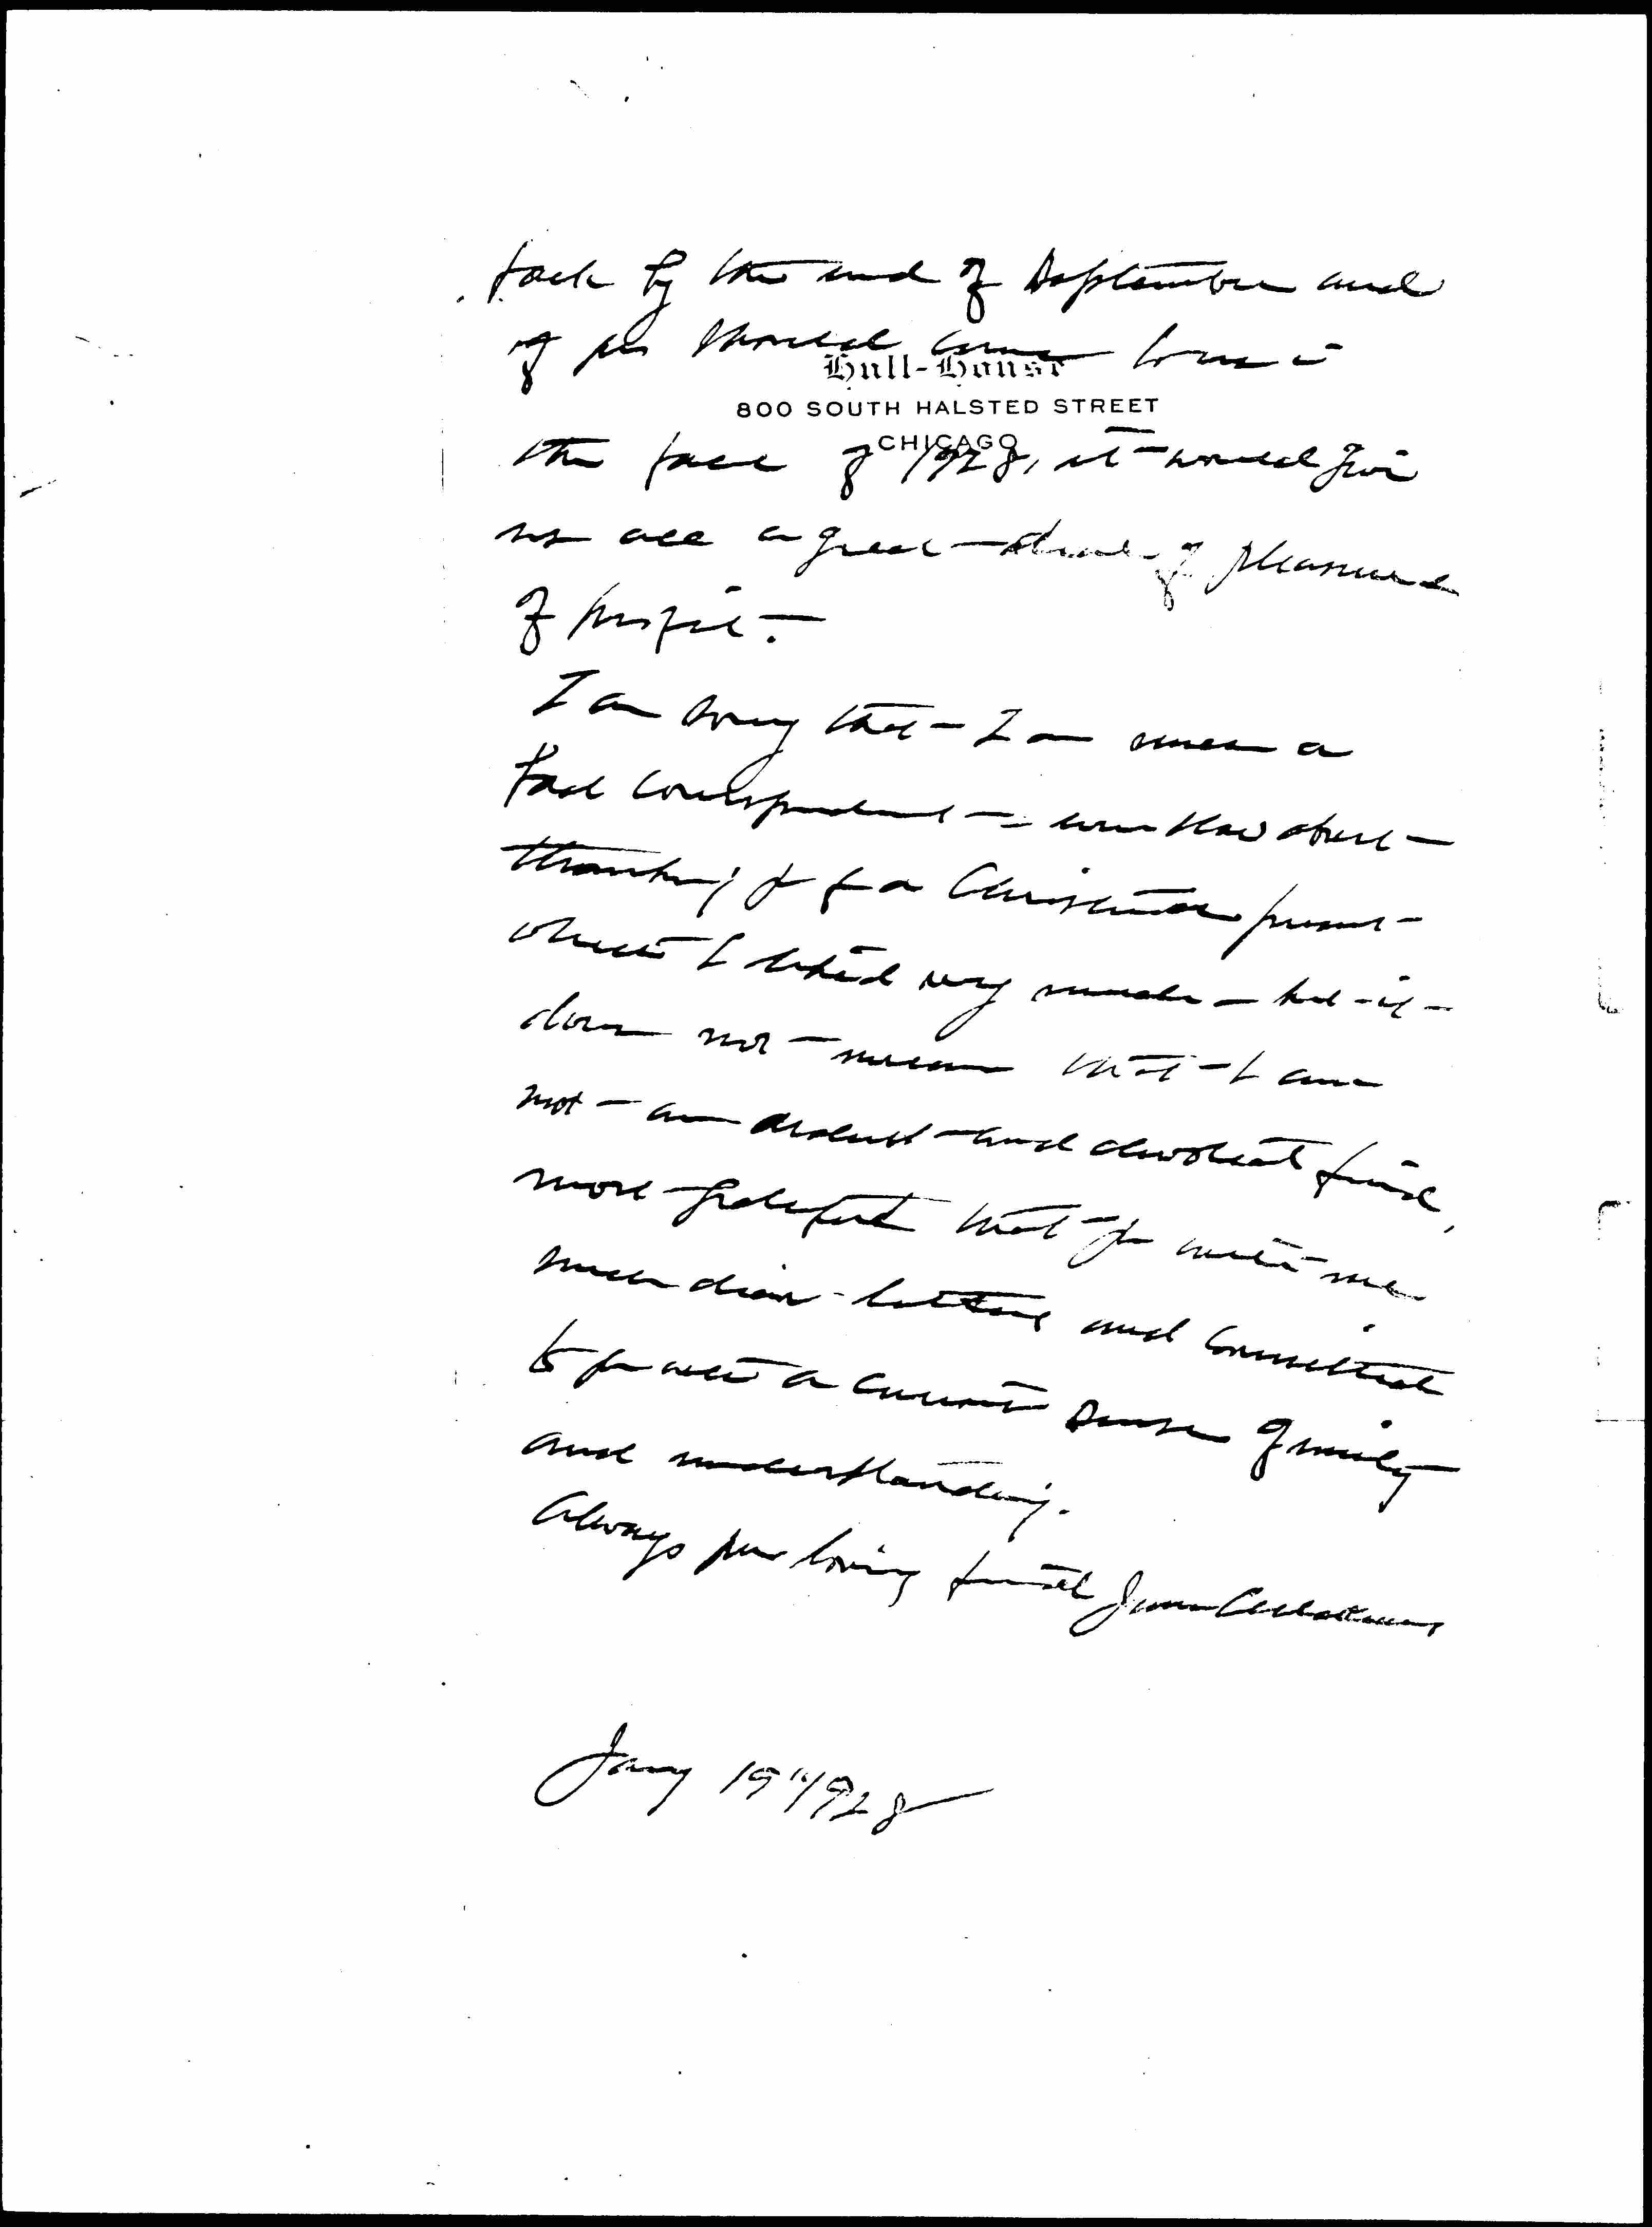 back by the end of September and
if you should come home in
Hull-House
800 SOUTH HALSTED STREET
CHICAGO
the fall of 1928, it would give
us all a great deal of pleasure
& profit.
I am sorry that I am such a
bad correspondent - even slow about
thanking you for a Christmas present
which I liked very much - but it
does not mean that I am
not an ardent and devoted friend,
most grateful that you write me
such dear letters and committed
to you with a curious sense of unity
and understanding.
Always your loving friend Jane Addams
Jany 19" 1928